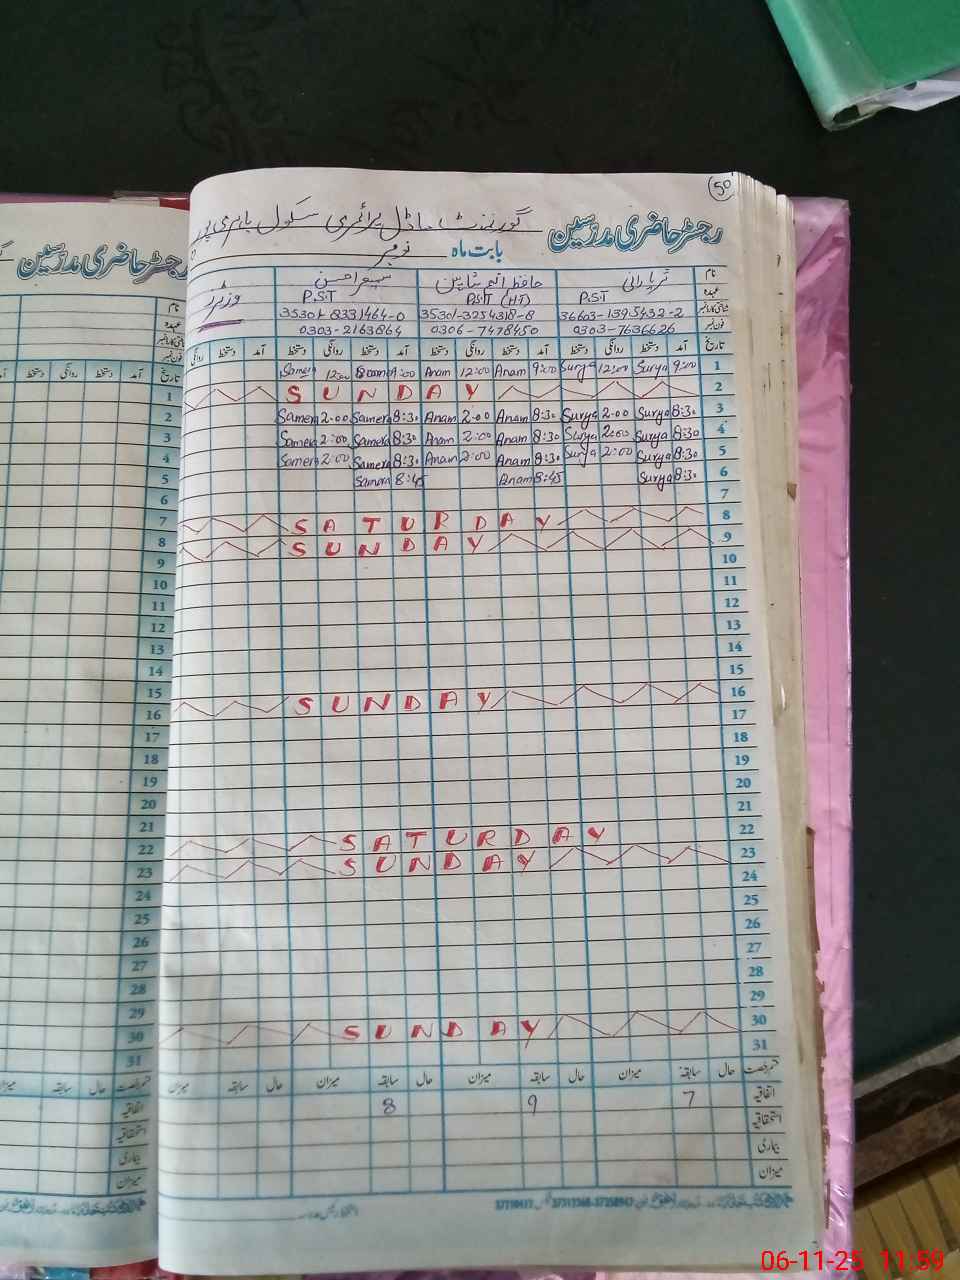 50
رجسٹر حاضری مدرسین
گورنمنٹ ماڈل پرائمری سکول
بابت ماہ نومبر
نام ثریا رانی حافظہ انعم شاہین
عہدہ P.S.T P.S.T (HT) P.S.T وزیٹر
36603-1395432-2 35301-3254318-8 35301-8331464-0
فون نمبر 0303-7636626 0306-7478450 0303-2163864
تاریخ آمد دستخط روانگی دستخط آمد دستخط روانگی دستخط آمد دستخط روانگی دستخط آمد دستخط روانگی
1 9:00 Surya 12:00 Surya 9:00 Anam 12:00 Anam 9:00 Samera 12:00 Samera
2 SUNDAY
3 8:30 Surya 2:00 Surya 8:30 Anam 2:00 Anam 8:30 Samera 2:00 Samera
4 8:30 Surya 2:00 Surya 8:30 Anam 2:00 Anam 8:30 Samera 2:00 Samera
5 8:30 Surya 2:00 Surya 8:30 Anam 2:00 Anam 8:30 Samera 2:00 Samera
6 8:30 Surya 8:45 Anam 8:45 Samera
7
8 SATURDAY
9 SUNDAY
10
11
12
13
14
15
16 SUNDAY
17
18
19
20
21
22 SATURDAY
23 SUNDAY
24
25
26
27
28
29
30 SUNDAY
31
قسم رخصت حال سابقہ میزان حال سابقہ میزان حال سابقہ میزان حال سابقہ میزان
اتفاقیہ 7 9 8
استحقاقیہ
بیماری
میزان
رجسٹر حاضری مدرسین
نام
عہدہ
فون نمبر
تاریخ آمد دستخط روانگی دستخط آمد
1
2
3
4
5
6
7
8
9
10
11
12
13
14
15
16
17
18
19
20
21
22
23
24
25
26
27
28
29
30
31
قسم رخصت حال سابقہ میزان
اتفاقیہ
استحقاقیہ
بیماری
میزان
06-11-25 11:59